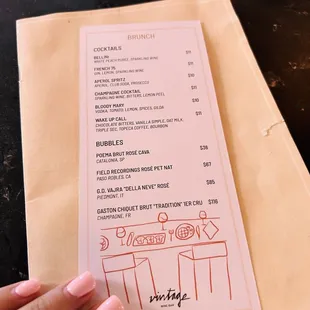 BRUNCH
COCKTAILS
BELLINI $11
WHITE PEACH PUREE, SPARKLING WINE
FRENCH 75 $11
GIN, LEMON, SPARKLING WINE
APEROL SPRITZ $11
APEROL, CLUB SODA, PROSECCO
CHAMPAGNE COCKTAIL $11
SPARKLING WINE, BITTERS, LEMON PEEL
BLOODY MARY $10
VODKA, TOMATO, LEMON, SPICES, OLIVE
WAKE UP CALL $11
CHOCOLATE BITTERS, VANILLA SIMPLE, OAT MILK,
TRIPLE SEC, TOPECA COFFEE, BOURBON
BUBBLES
POEMA BRUT ROSÉ CAVA $36
CATALONIA, SP
FIELD RECORDINGS ROSÉ PET NAT $67
PASO ROBLES, CA
G.D. VAJRA "DELLA NEVE" ROSÉ $85
PIEDMONT, IT
GASTON CHIQUET BRUT "TRADITION" 1ER CRU $116
CHAMPAGNE, FR
vintage
WINE BAR